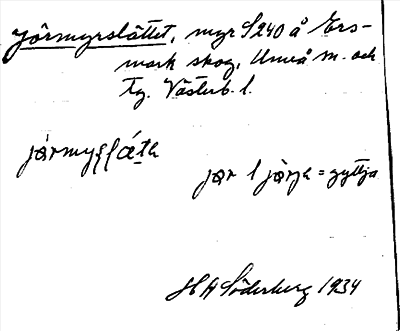 Jörmyrslåttet, myr S240 å Ers-
mark skog, Umeå m. och
tg. Västerb. l.
jarmy
jar l jarja = gyttja
H A Söderberg 1934